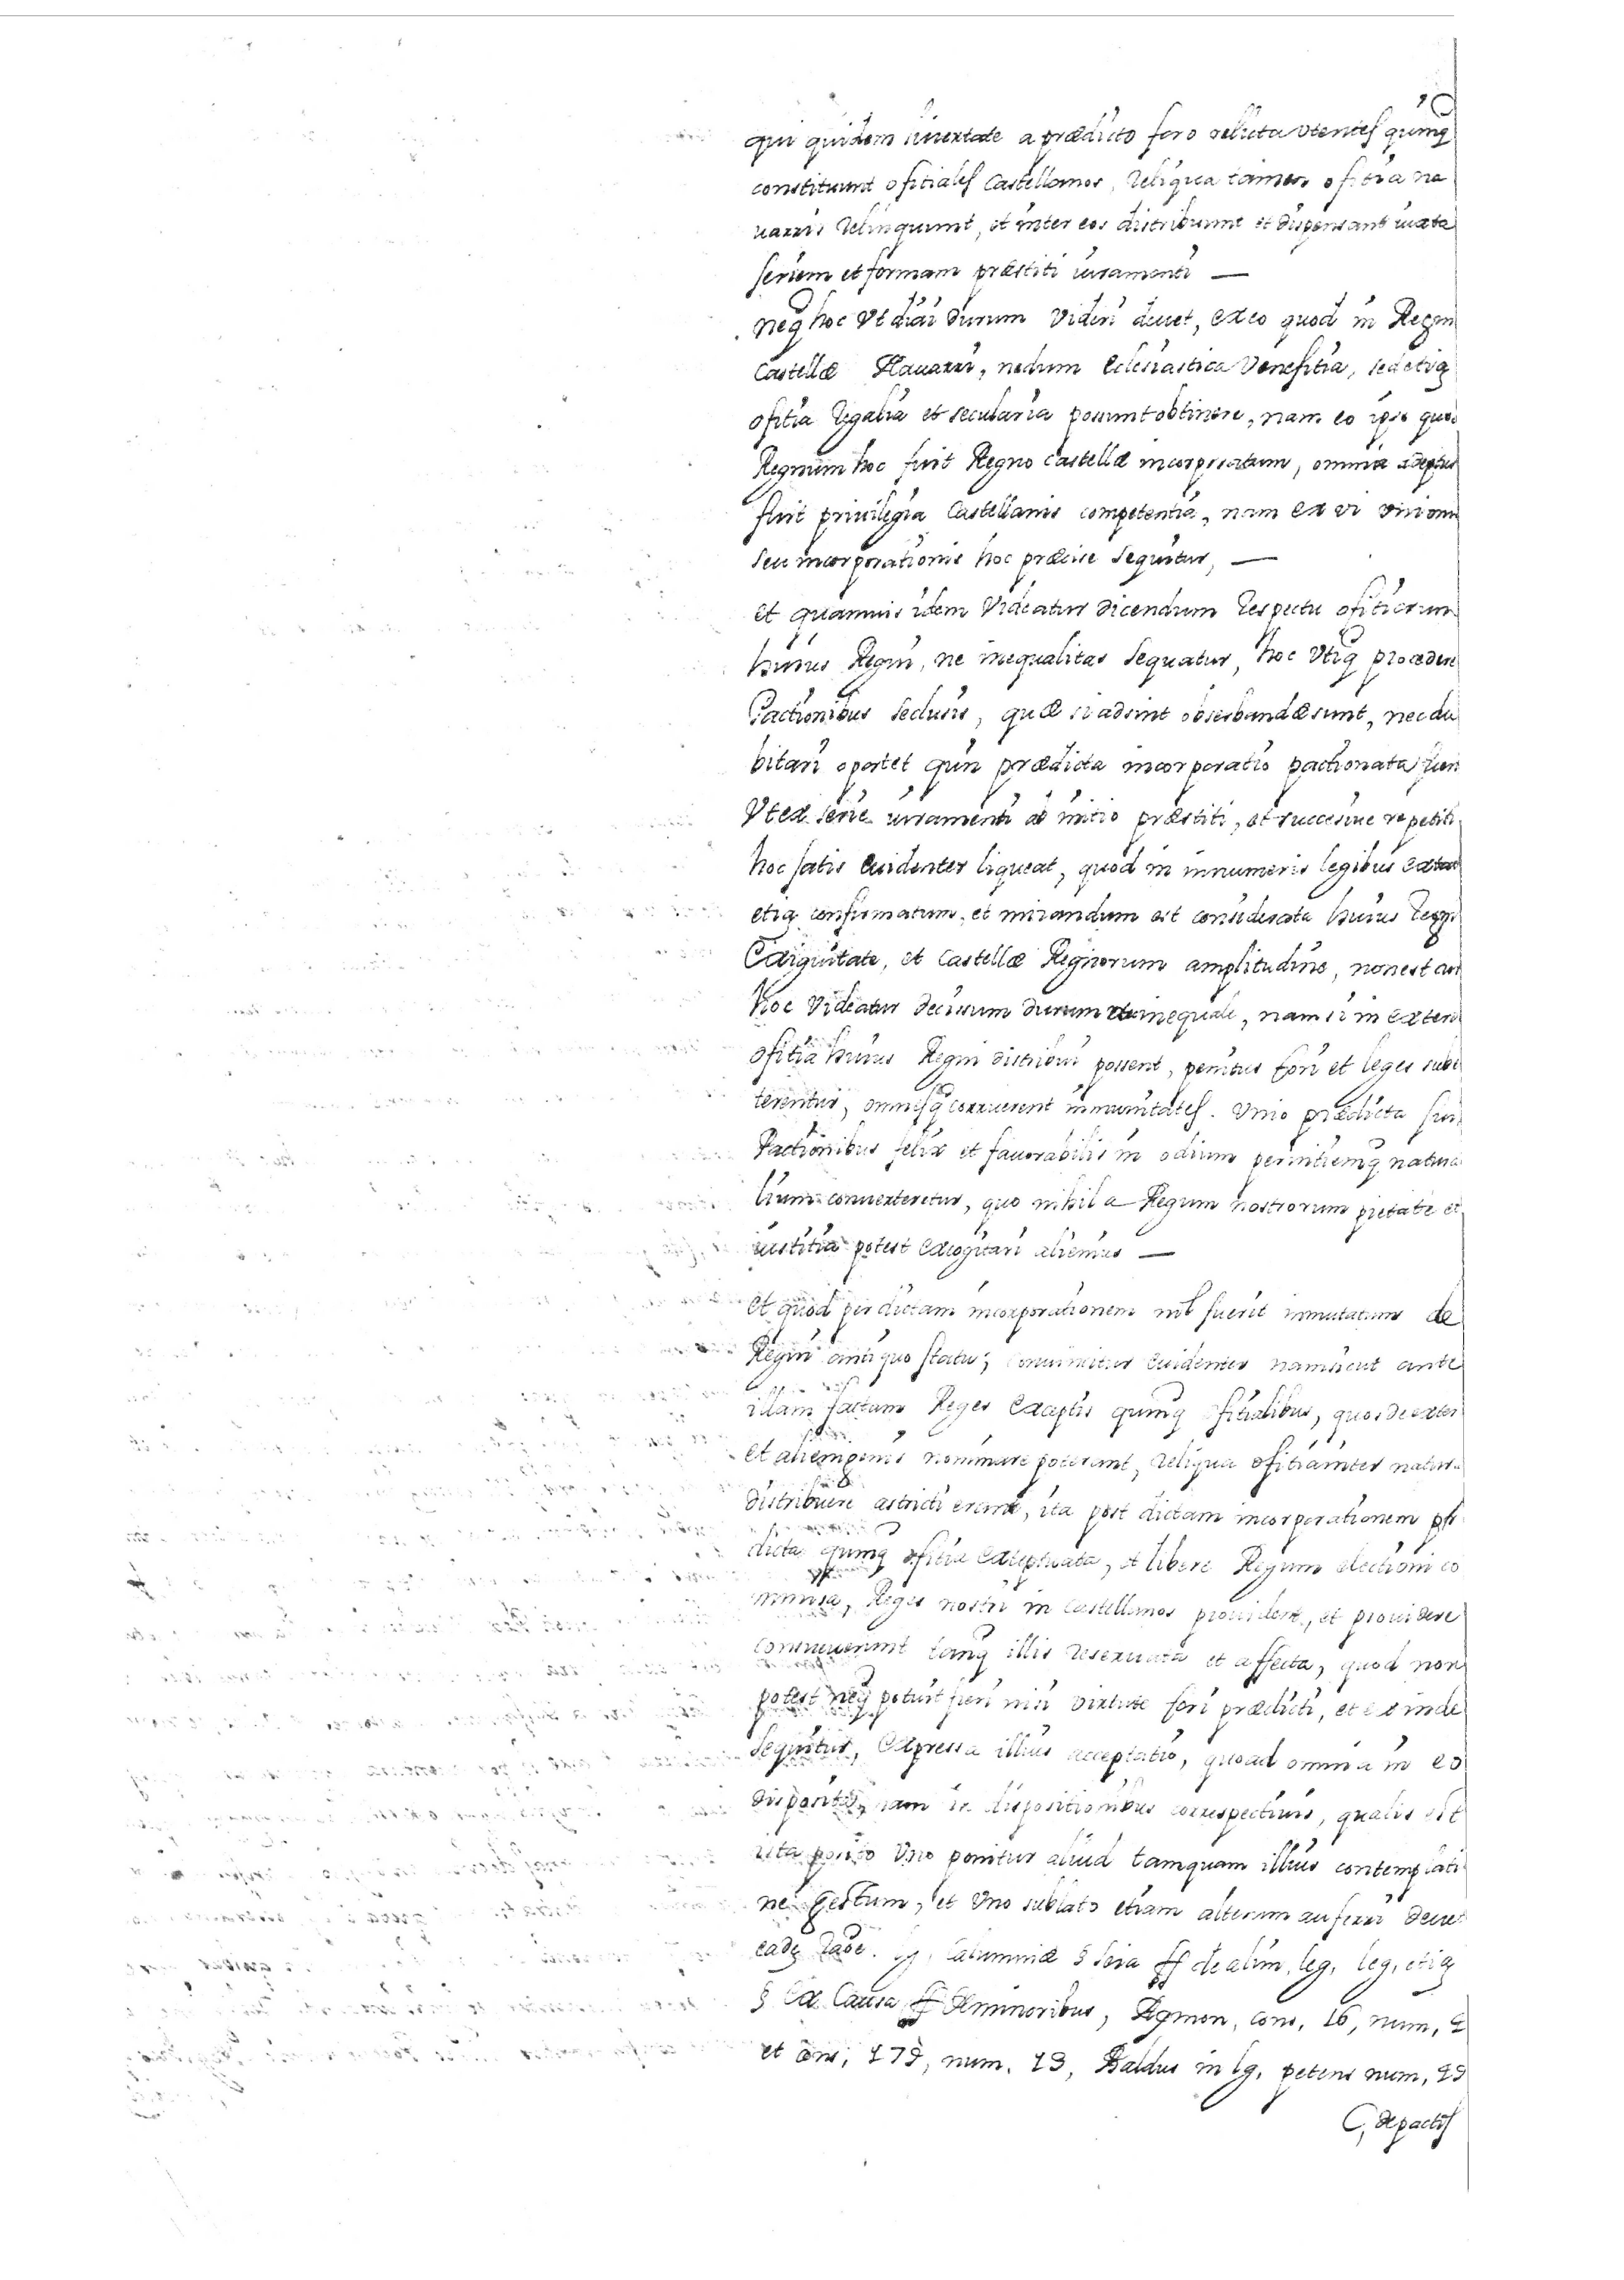 qui quidem libertate a prædicto foro relicta Vtentes quinq
constituunt ofitiales Castellanos, Reliqua tamen ofitia na
uarris Relinquunt, et inter eos distribuunt et dispensant iuxta
seriem et formam præstiti iuramenti —
neq hoc Vt dici durum Videri deuet, ex eo quod in Regni
Castellæ Nauarri, nedum Eclesiastica Venefitia, sed etiā
ofitia Regalia et secularia possunt obtinere, nam eo ipso quod
Regnum hoc fuit Regno Castellæ incorporatum, omnia adeptus
fuit priuilegia Castellanis competentia, nam ex vi vnionis
seu incorporationis hoc præcise sequitur, —
et quamuis idem Videatur dicendum Respectu ofitiorum
huius Regni, ne inequalitas sequatur, hoc Vtiq procedere
Pactionibus seclusis, quæ si adsint obserbandæ sunt, nec du
bitari oportet quin prædicta incorporatio pactionata fueri
Vt ex serie iuramenti ab initio præstiti, et succesiue repetiti
hoc satis Euidenter liqueat, quod in innumeris legibus Extat
etiā confirmatum, et mirandum est considerata huius Regni
Exiguitate, et Castellæ Regnorum amplitudine, non est cur
hoc Videatur durum inequale, nam si in exteros
ofitia huius Regni distribui possent, penitus fori et leges sube
terentur, omnesq corruerent inmunitates. Vnio prædicta sui
Pactionibus felix et fauorabilis in odium pernitiemq natura
lium conuerteretur, quo nihil a Regum nostrorum pietate et
iustitia potest Excogitari alienius —
et quod per dictam incorporationem nil fuerit inmutatum de
Regni antiquo statu, conuincitur Euidenter nam sicut ante
illam factam Reges Exceptis quinq ofitialibus, quos de exteris
et alienigenis nominare poterant, Reliqua ofitia inter natura
distribuere astricti erant, ita post dictam incorporationem
dicta quinq ofitia Exceptuata, et libere Regum electioni co
missa, Reges nostri in Castellanos prouident, et prouidere
consueuerunt tanq illis reseruata et affecta, quod non
potest neq potuit fieri nisi virtute fori prædicti, et exinde
sequitur, Expressa illius acceptatio, quoad omnia in eo
disposita, nam in dispositionibus correspectiuis, qualis est
ista posito Vno ponitur aliud tamquam illius contemplatio
ne gestum, et Vno sublato etiam alterum auferri deuet
Calumniæ § de alim. leg. leg. etiā
§ Ex Causa ff de minoribus, cons, 16, num, 2
et cons, 179, num. 13, Baldus in lg. petens num, 29
C, de pactis